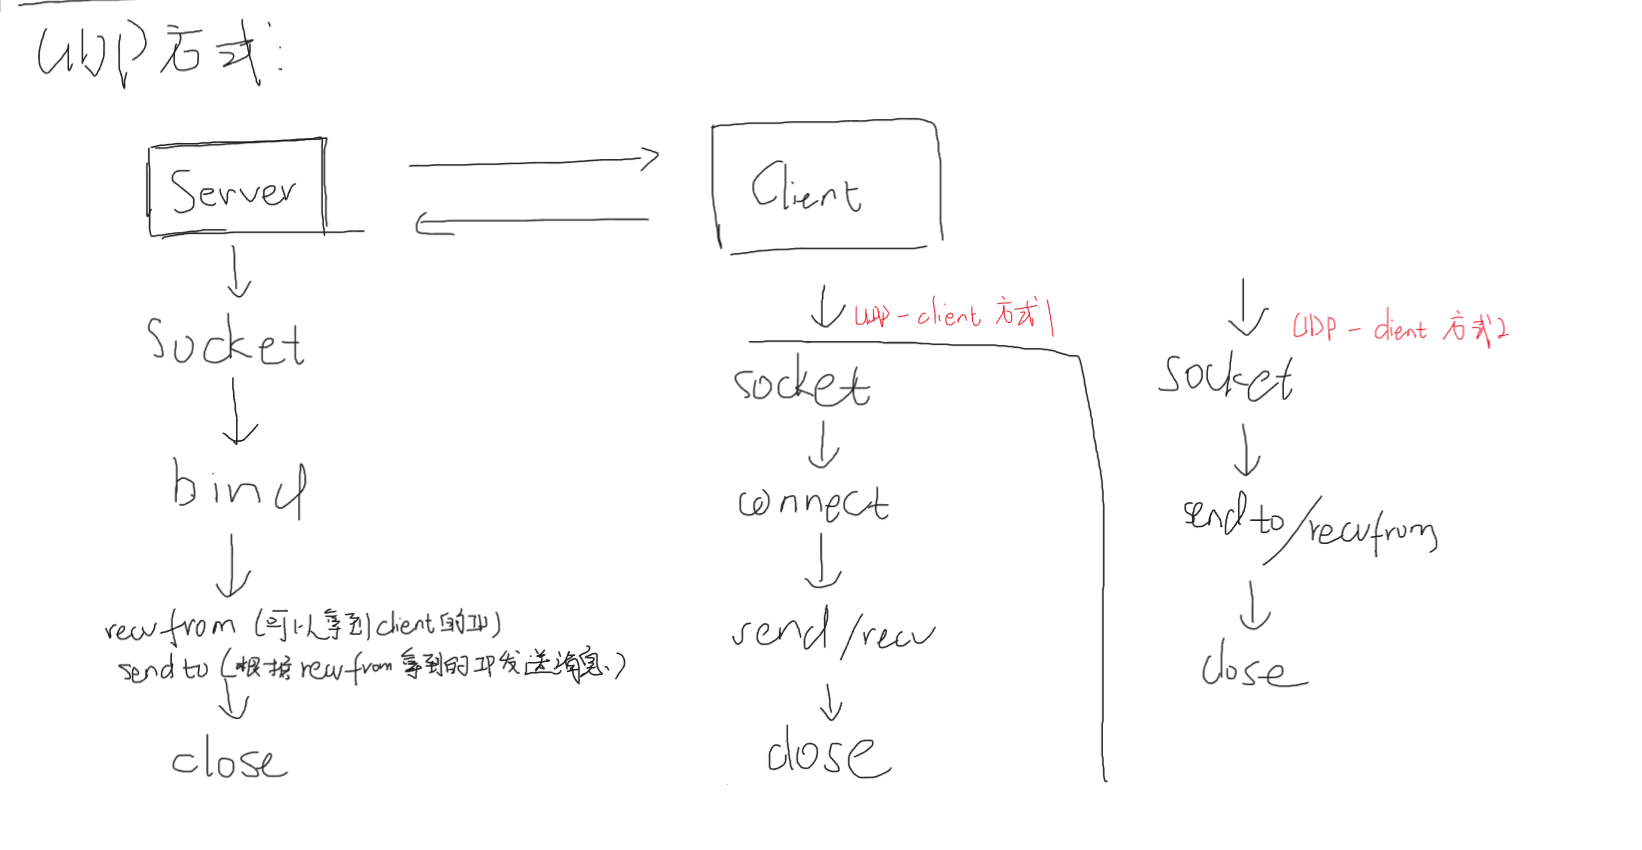 UDP方式:
Server
Client
Socket
bind
recvfrom (可以拿到client的IP)
sendto (根据recvfrom拿到的IP发送消息.)
close
UDP-client 方式1
socket
connect
send/recv
close
UDP-client 方式2
socket
sendto/recvfrom
close